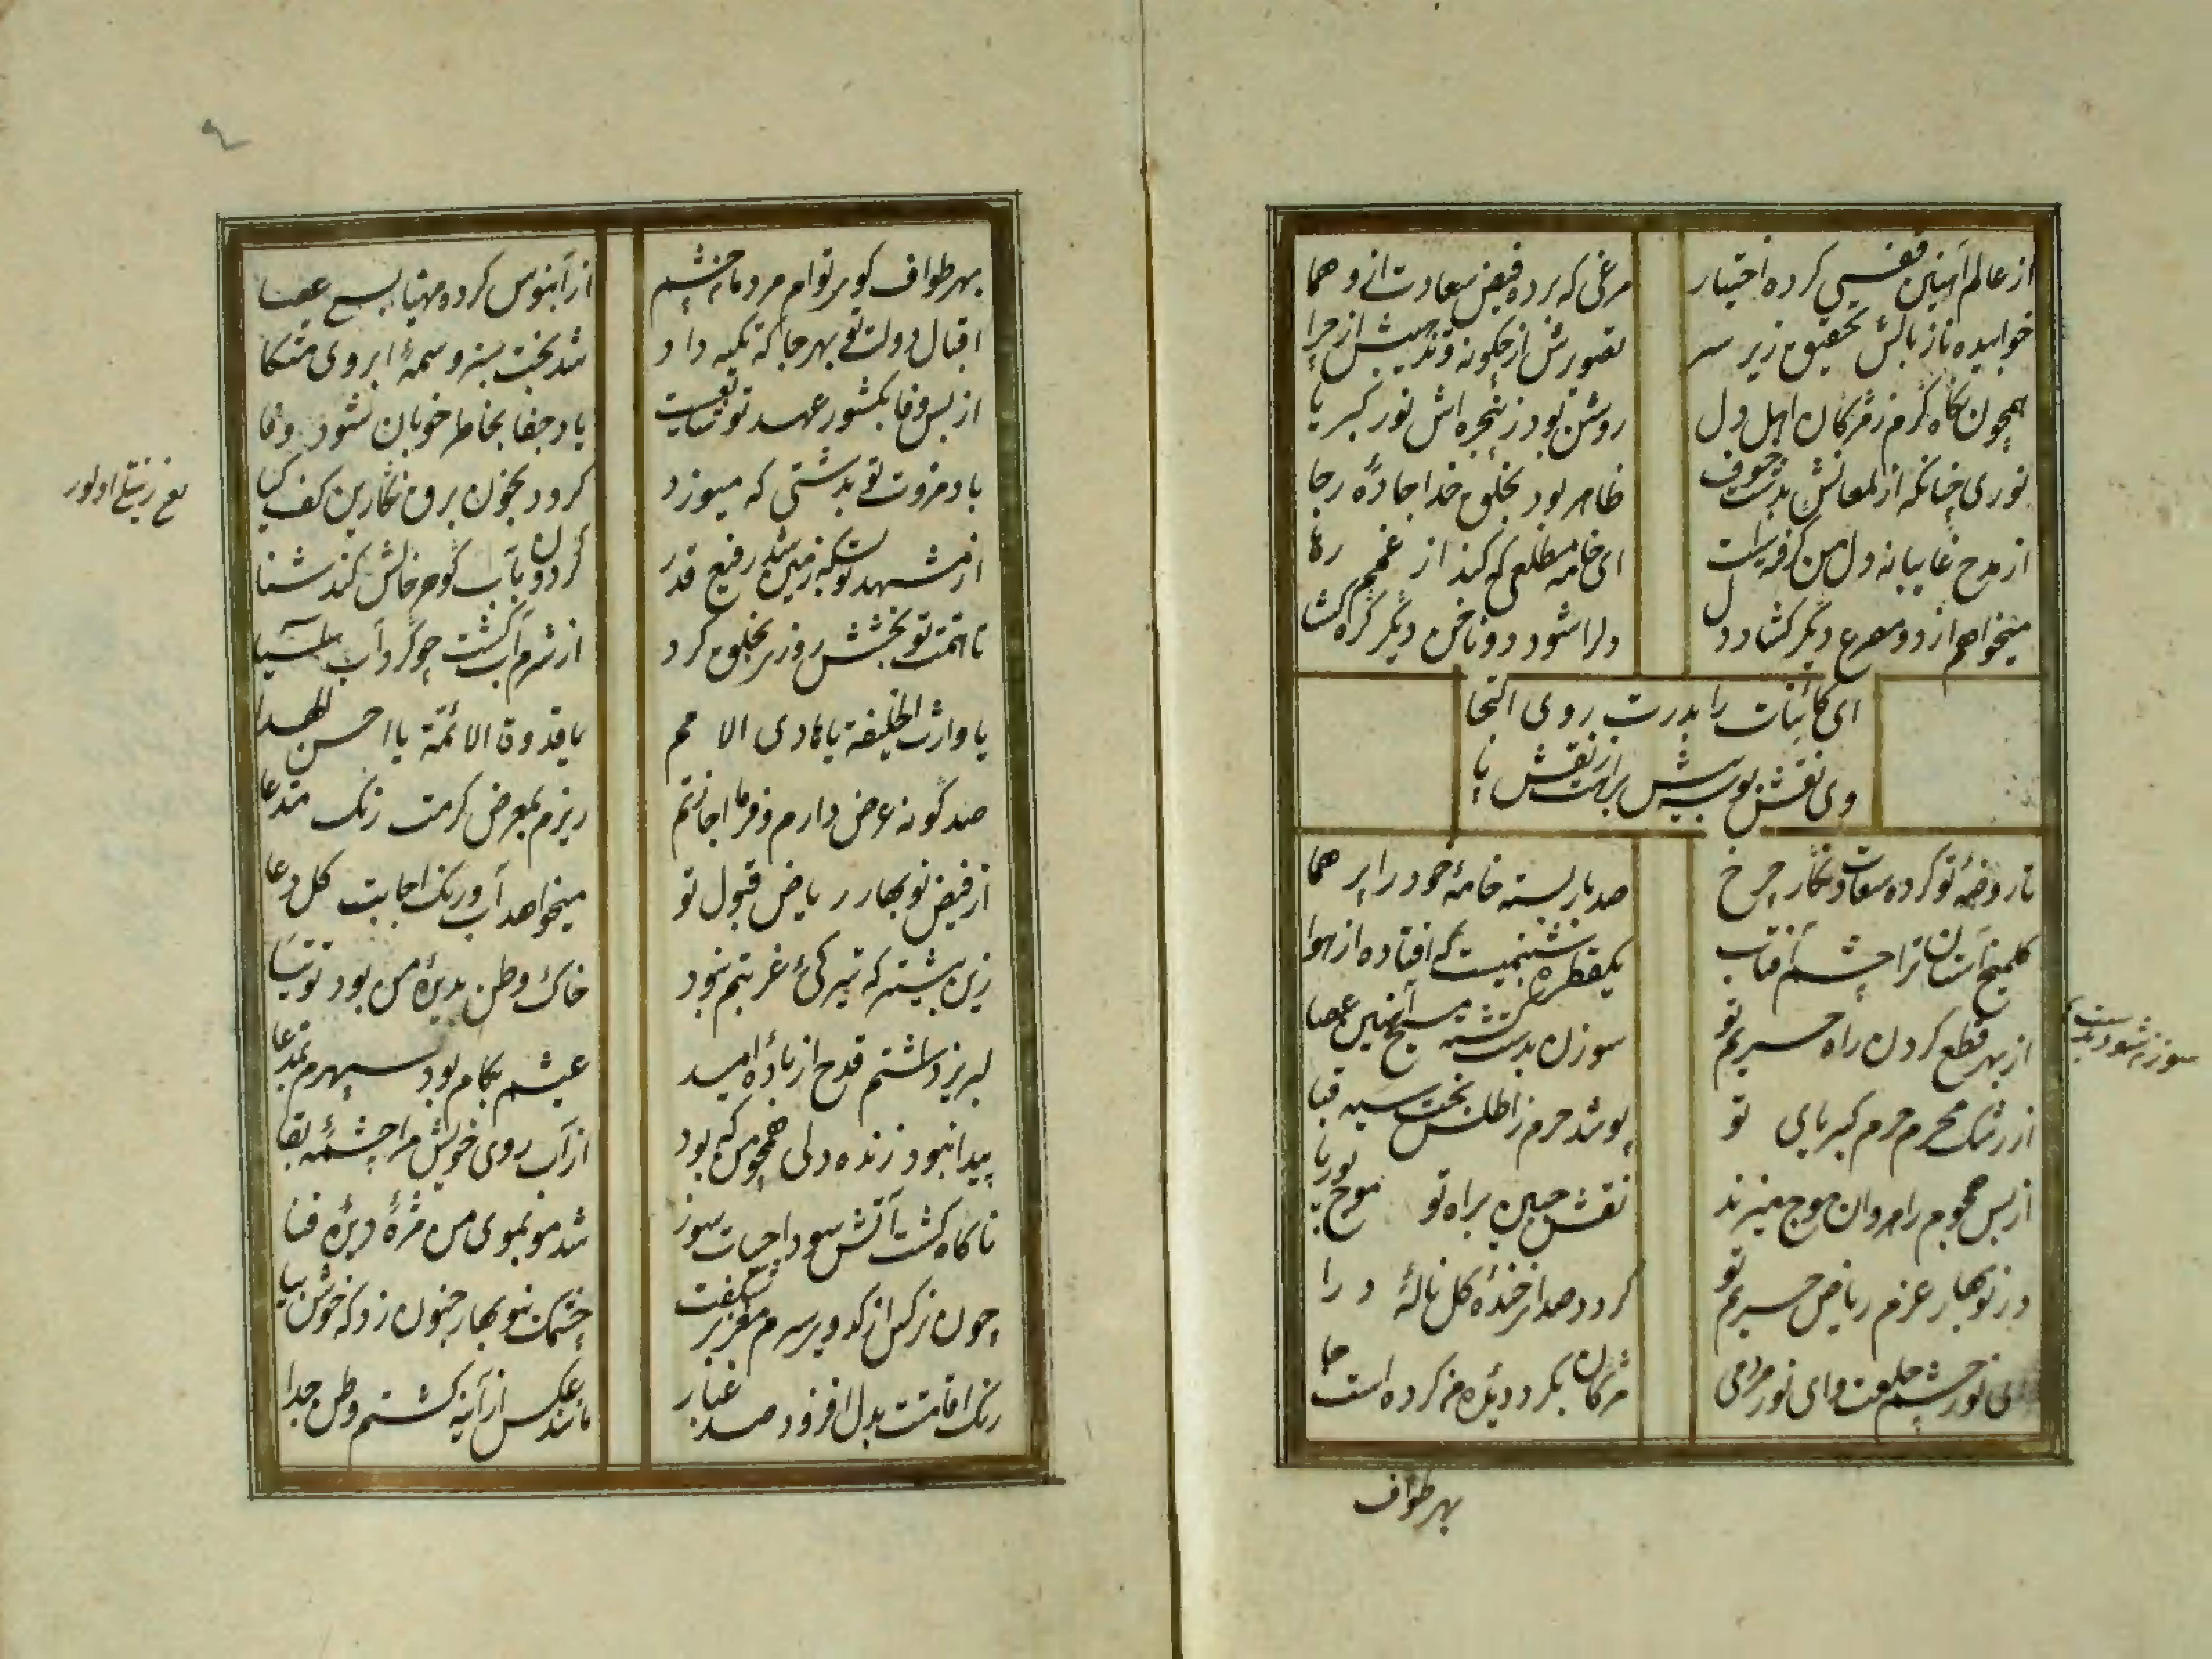 از عالم آهنین قفسی کرده اختیار
مرغی که برده فیض سعادت ازو هما
خوابیده ناز بالش تحقیق زیر سر
تصویرش از چگونه و تدبیش از چرا
همچون نگاه گرم ز مژگان اهل دل
روشن بود ز پنجره اش نور کبریا
نوری چنانکه از لمعانش بدشت خوف
ظاهر بود بخلق خدا جادهٔ رجا
از مدح غایبانه دل من گرفته است
ای خامه مطلعی که کند از غمم رها
میخواهم از دو مصرع دیگر گشاد دل
دلرا شود دو ناخن دیگر گره گشا
ای کائنات را بدرت روی التجا
وی نقش بوسه بیش براهت ز نقش پا
تا روضهٔ تو کرده سعادت نگار چرخ
صد بار بسته خامهٔ خود را پر هما
گلمیخ آستان ترا چشم آفتاب
یکقطره شبنمیست که افتاده از هوا
از بهر قطع کردن راه حریم تو
سوزن بدست گشته مسیح آهنین عصا
از رشک محرم حرم کبریای تو
پوشد حرم ز اطلس بخت سیه قبا
از بس هجوم راهروان موج میزند
نقش جبین براه تو موج بوریا
در نوبهار عزم ریاض حریم تو
گردد صدا ز خندهٔ گل نالهٔ درا
ای نور چشم خلعت و ای نور مردمی
مژگان بگرد دیده من کرده است جا
بهر طواف
بهر طواف کوی توام مردمان چشم
از آبنوس کرده مهیا بسی عصا
اقبال دولت تو بهر جا که تکیه داد
شد بخت سبز وسمهٔ ابروی متکا
از بس وفا بکشور عهد تو شایعست
یاد جفا بخاطر خوبان شود وفا
باد مروت تو بدشتی که میوزد
گردد بخون برق نگارین کف گیا
از مشهد تو بسکه زمین شد رفیع قدر
گردون بآب گوهر خاکش کند شنا
تا همت تو بخشش روزی بخلق کرد
از شرم آب گشت چو گرداب آسیا
یا وارث الخلیفة یا هادی الامم
یا قدوة الائمة یا احسن الهدا
صد گونه عرض دارم و فرما اجازتم
ریزم بمعرض کرمت رنگ مدعا
از فیض نوبهار ریاض قبول تو
میخواهد آب و رنگ اجابت گل دعا
زین پیشتر که تیرگی غربتم نبود
خاک وطن بدیدهٔ من بود توتیا
لبریز داشتم قدح از بادهٔ امید
عیشم بکام بود سپهرم بمدعا
پیدا نبود زنده دلی همچو من که بود
از آب روی خویش مرا چشمهٔ بقا
ناگاه گشت آتش سودا حیات سوز
شد مو بموی من مژهٔ دیدهٔ فنا
چون نرگس از کدوی سرم مغز بر شکفت
چشمک بنوبهار جنون زد که خوش بیا
رنگ اقامت بدل افزود صد غبار
مانند عکس از آینه گشتم وطن جدا